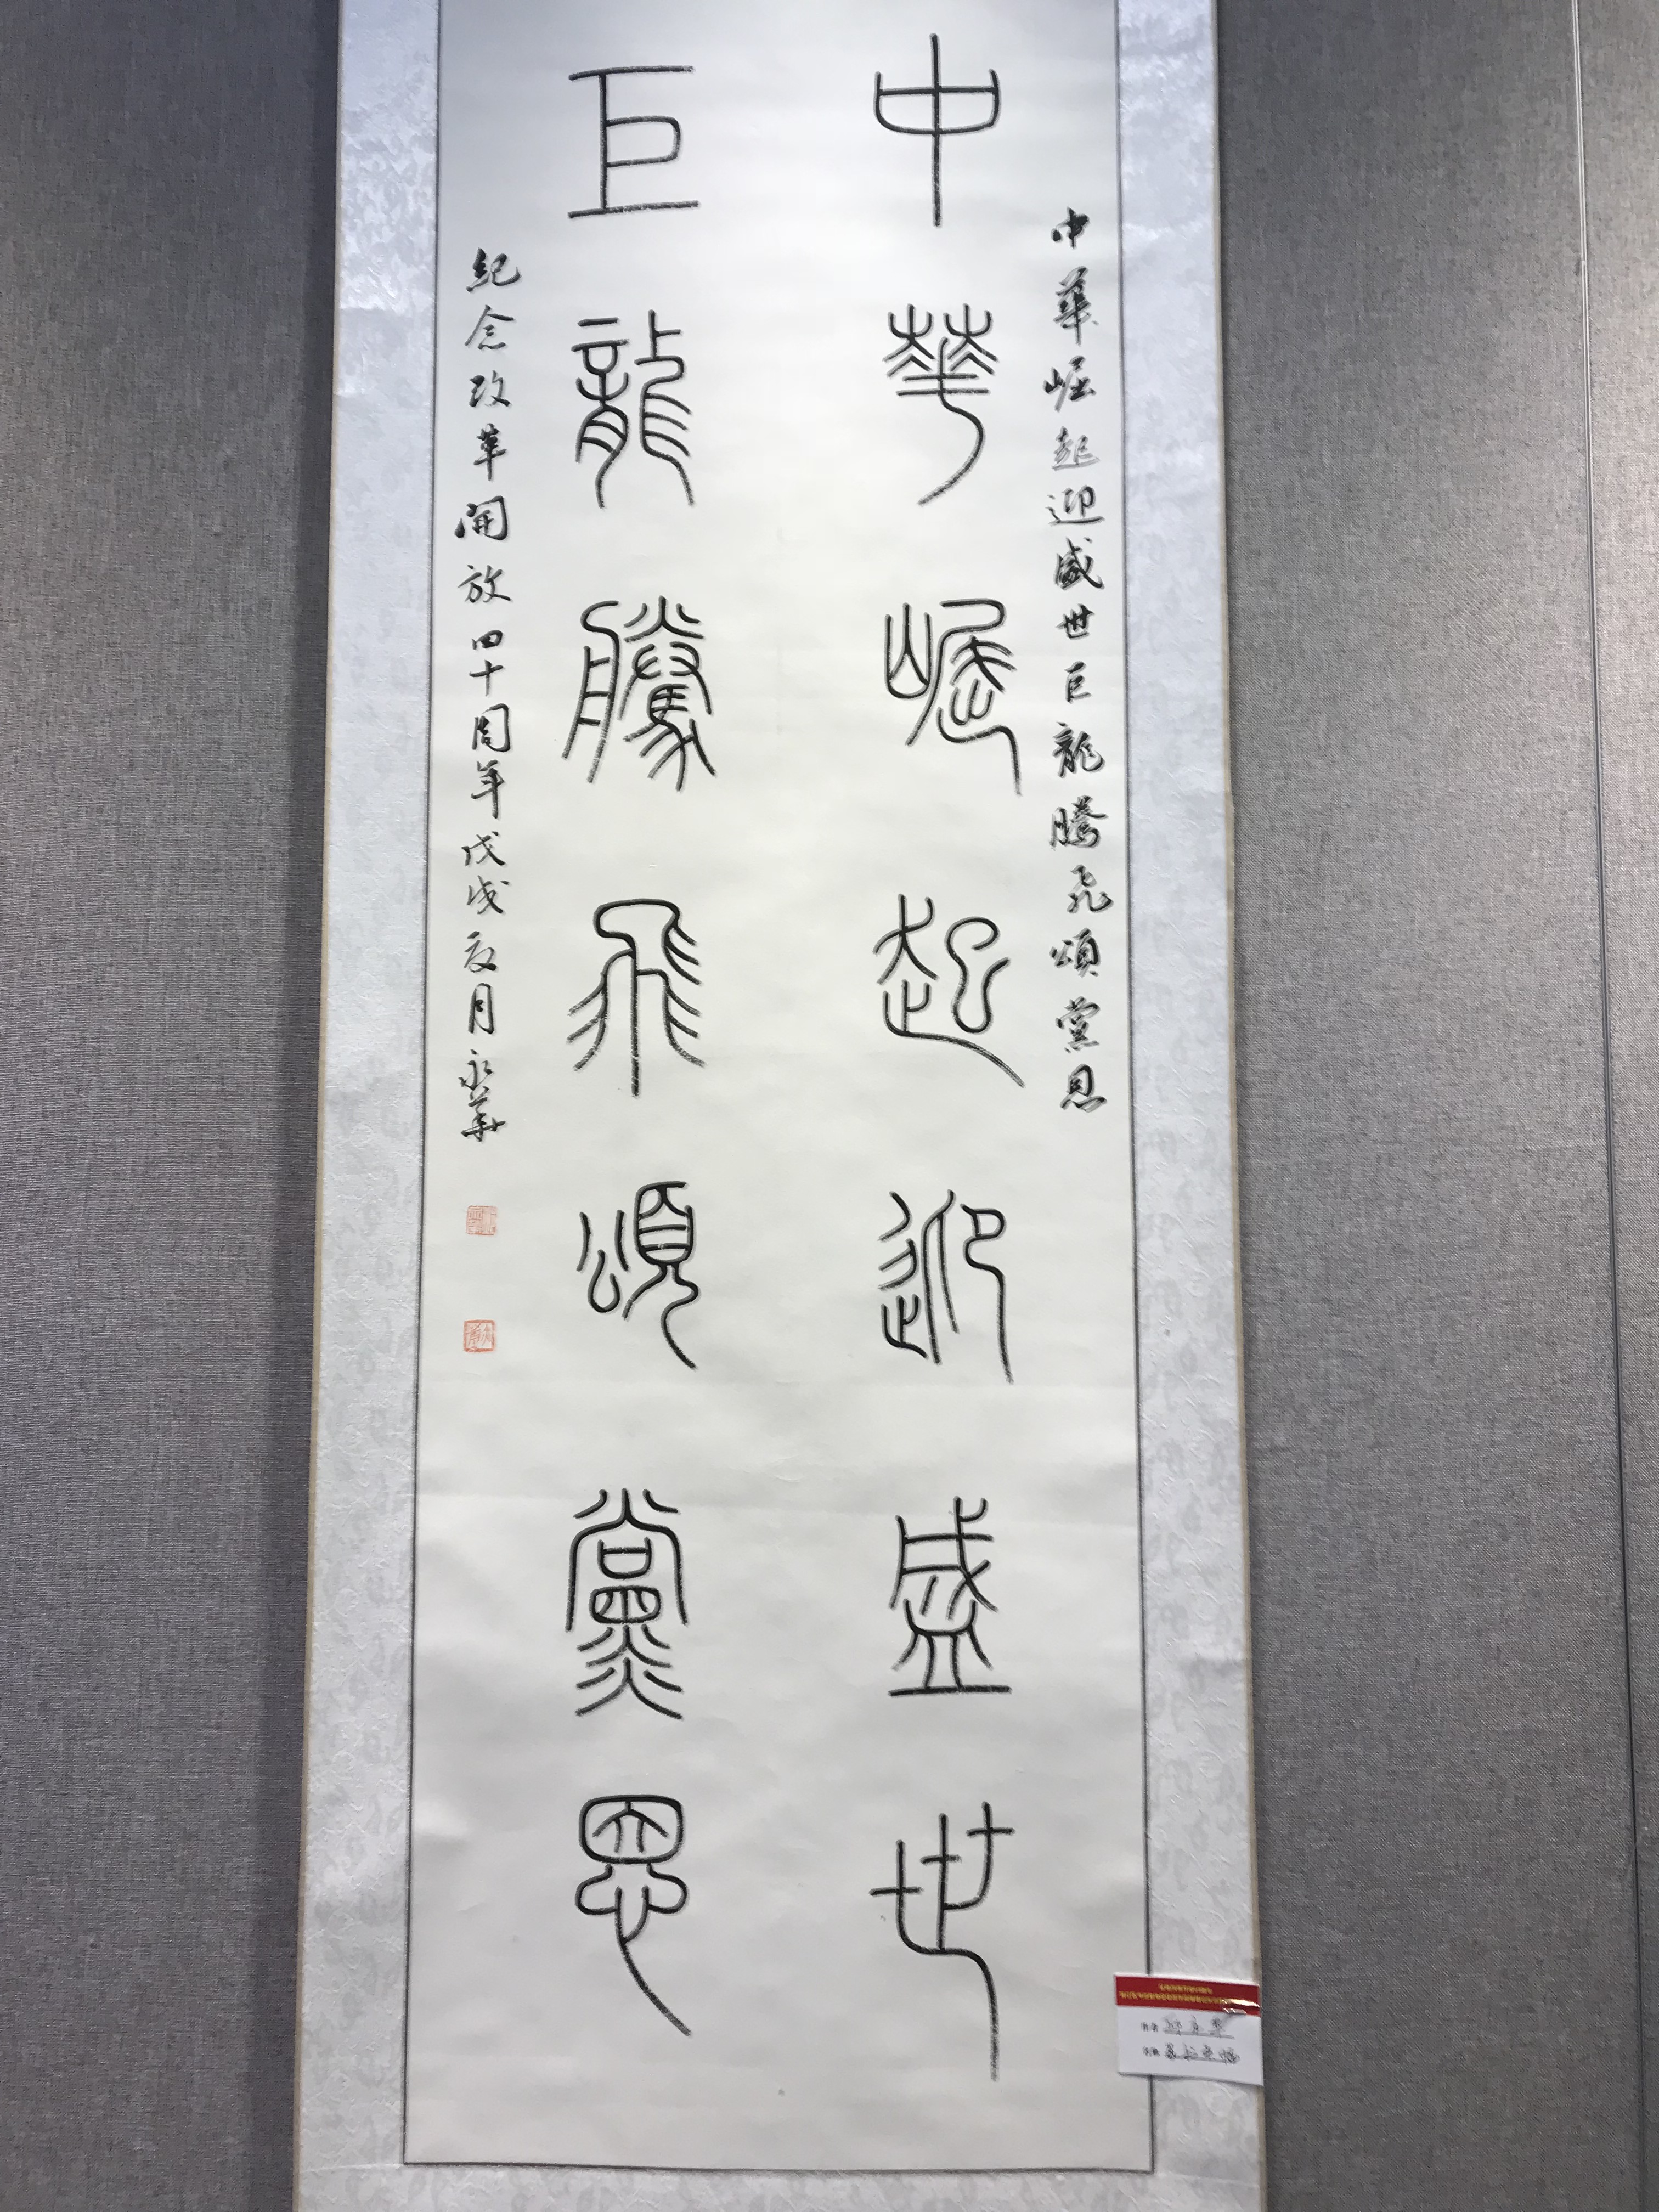 中華崛起迎盛世
巨龍騰飛頌黨恩
中華崛起迎盛世巨龍騰飛頌黨恩
紀念改革開放四十周年戊戌夏月永華